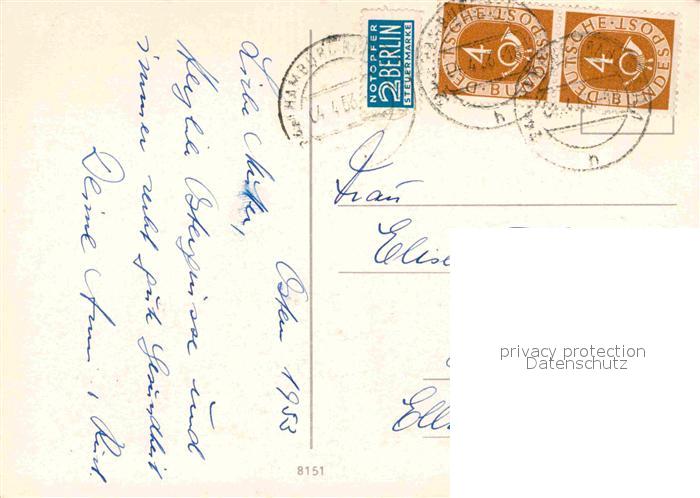 Ostern 1953
Liebe Mutter,
Herzliche Ostergrüsse und
immer recht gute Gesundheit
Deine Anni, Kurt.
NOTOPFER
2 BERLIN
STEUERMARKE
DEUTSCHE BUNDESPOST
4
DEUTSCHE BUNDESPOST
4
HAMBURG
h
h
Frau
Elise
Ell
8151
privacy protection
Datenschutz